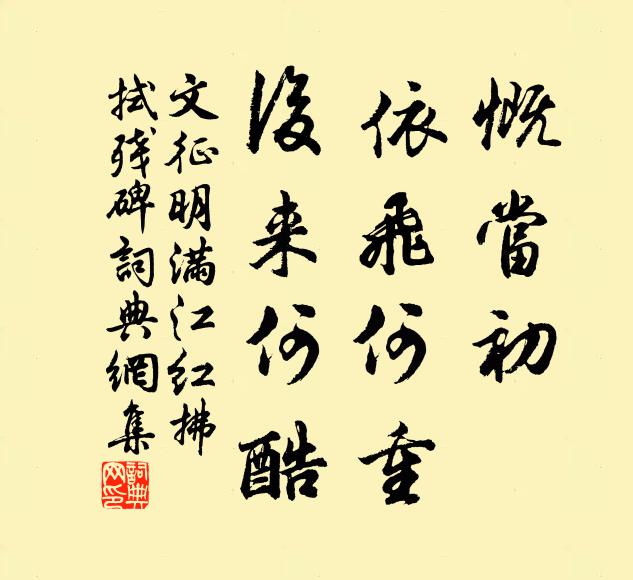 慨當初
依飛何重
後来何酷
文征明滿江紅拂
拭殘碑詞典網集
詞典网印